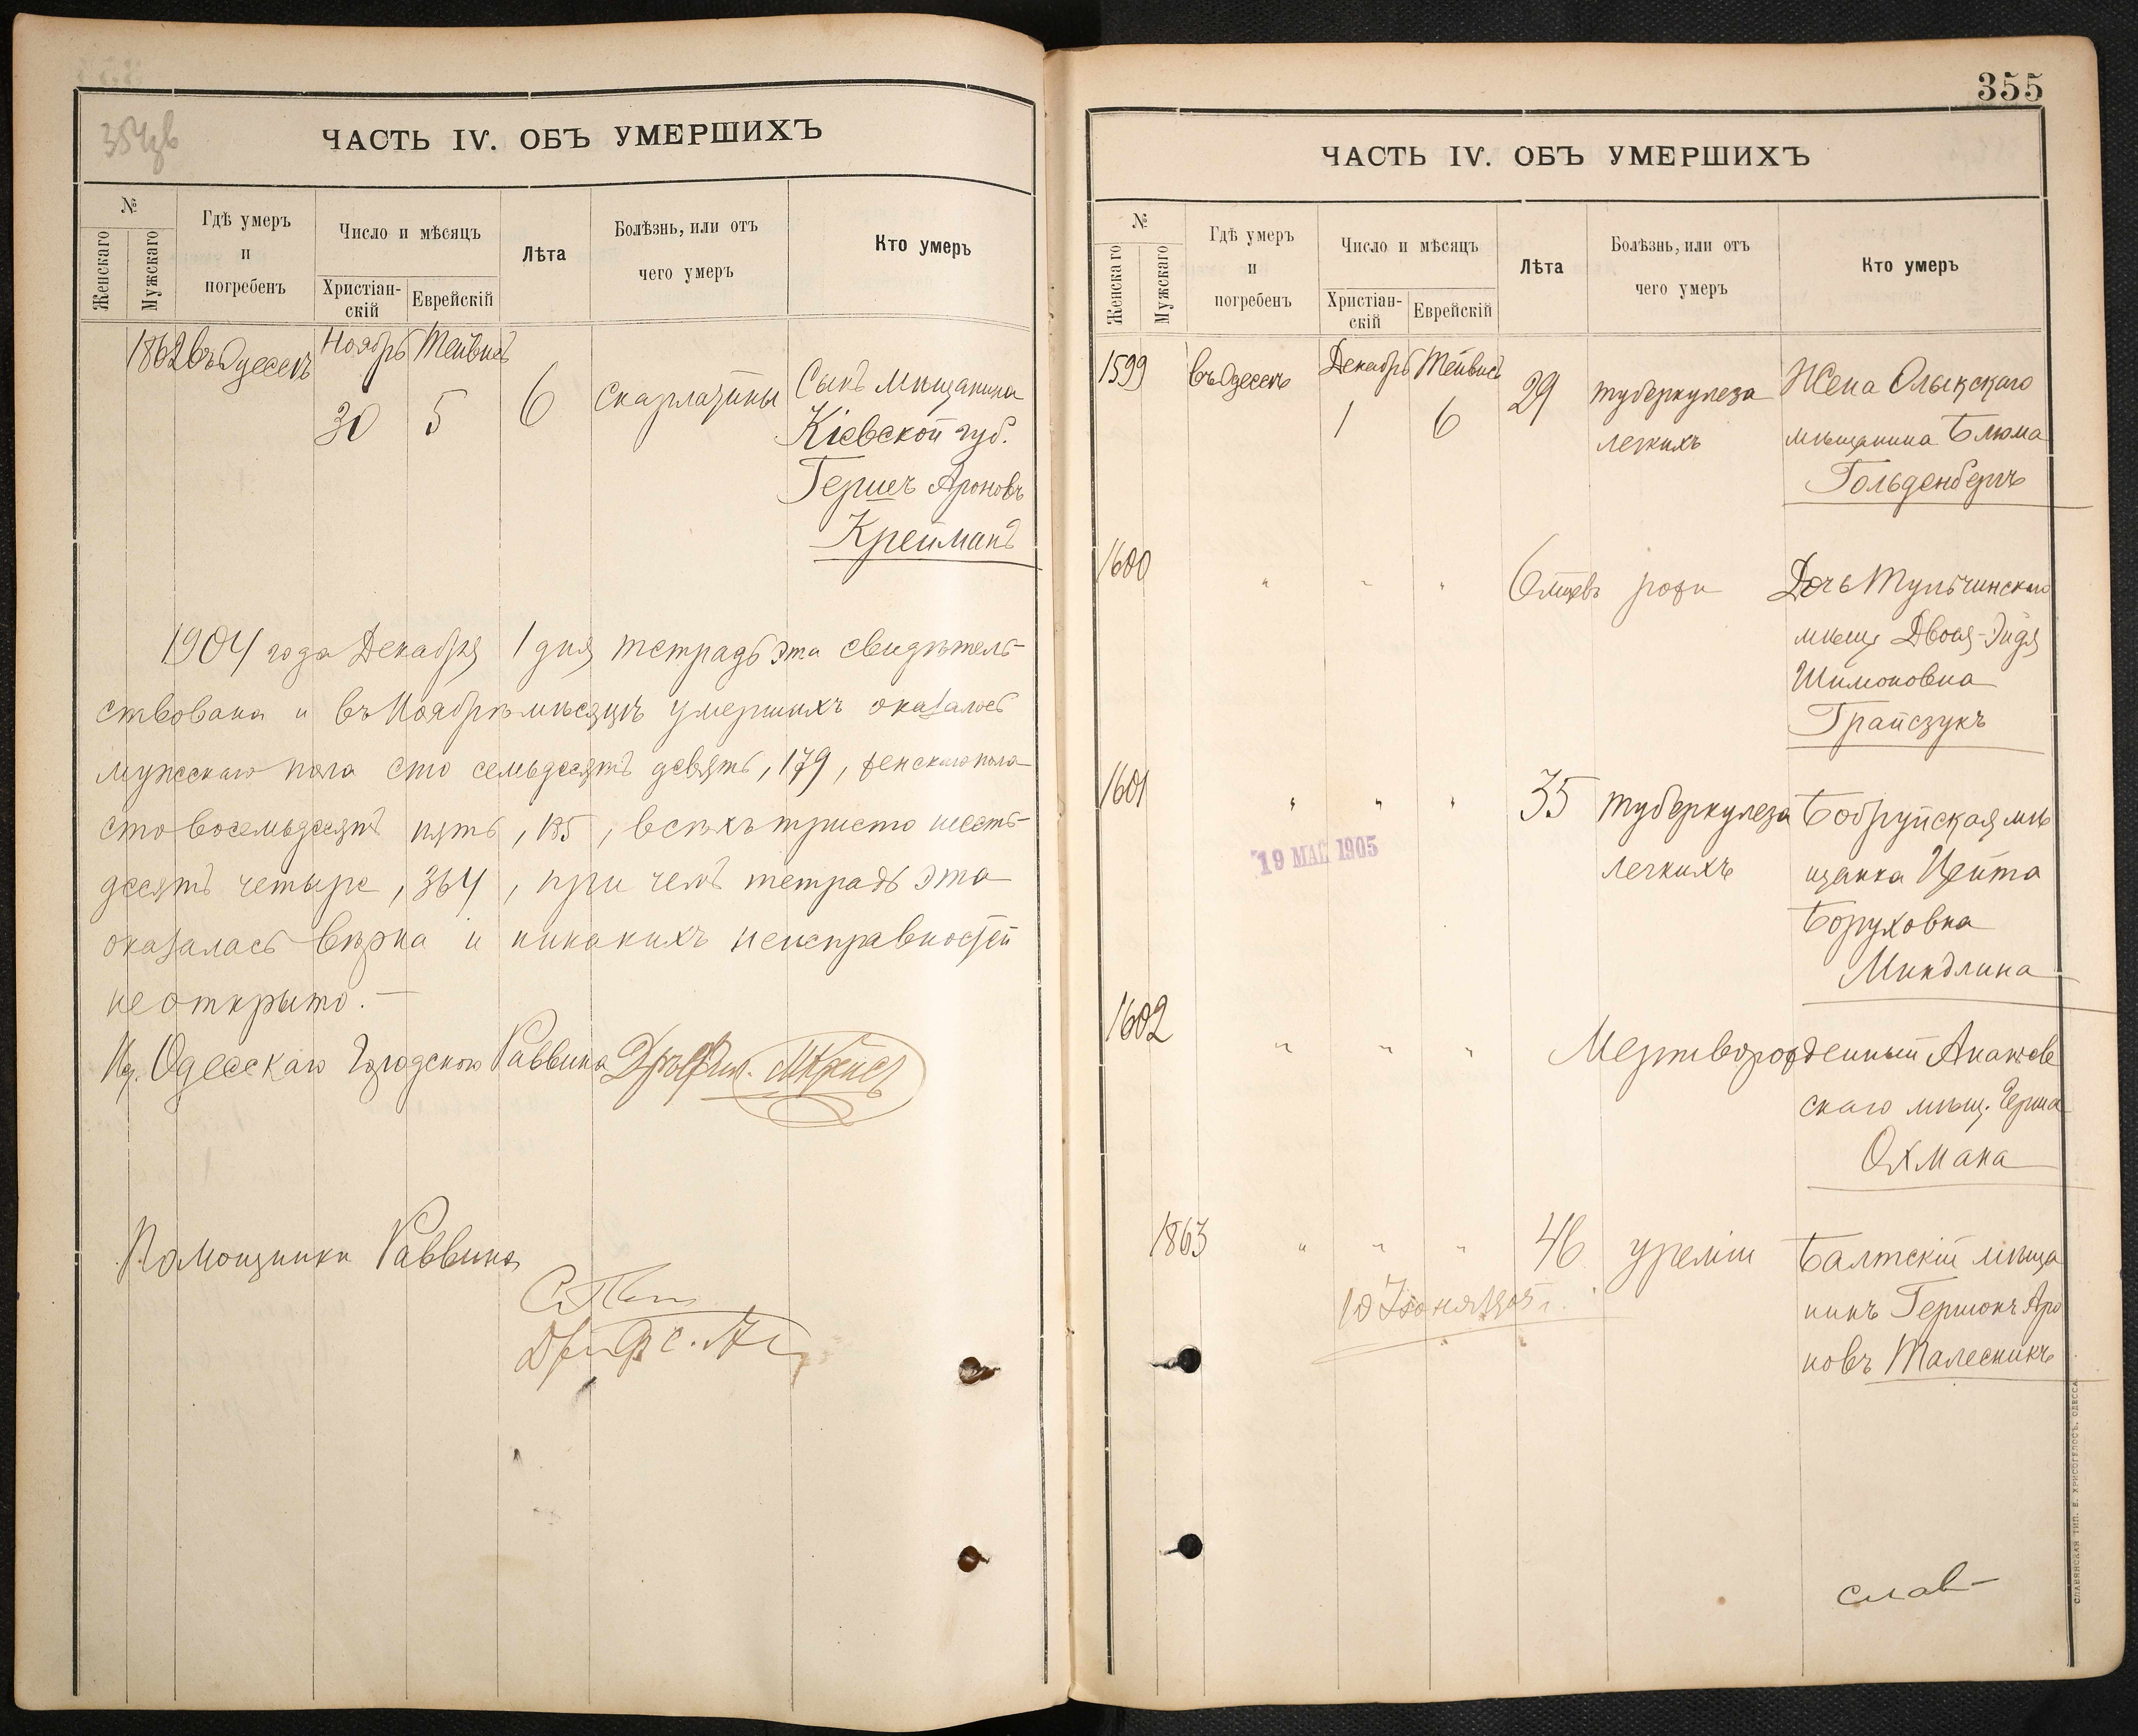 ЧАСТЬ IV. ОБЪ УМЕРШИХЪ
№
Женскаго
Мужскаго
Гдѣ умеръ
и
погребенъ
Число и мѣсяцъ
Христіан-
скій
Еврейскій
Лѣта
Болѣзнь, или отъ
чего умеръ
Кто умеръ
1862 въ Одессѣ Ноябрь Тейвисъ
30 5 6 Скарлатины Сынъ мѣщанина
Кіевской губ.
Гершъ Ароновъ
Крейманъ
1904 года Декабря 1 дня тетрадь эта свидѣтель-
ствована и въ Ноябрѣ мѣсяцѣ умершихъ оказалось
мужскаго пола сто семьдесятъ девять, 179, женскаго пола
сто восемьдесятъ пять, 185, всѣхъ триста шесть-
десятъ четыре, 364, при чемъ тетрадь эта
оказалась вѣрна и никакихъ неисправностей
не открыто.—
Одесскаго Городского Раввина
Помощники Раввина
355
ЧАСТЬ IV. ОБЪ УМЕРШИХЪ
№
Женскаго
Мужскаго
Гдѣ умеръ
и
погребенъ
Число и мѣсяцъ
Христіан-
скій
Еврейскій
Лѣта
Болѣзнь, или отъ
чего умеръ
Кто умеръ
1599 въ Одессѣ Декабрь Тейвисъ 29 туберкулеза Жена Олыкскаго
1 6 легкихъ мѣщанина Блюма
Гольденбергъ
1600 " " " 6 мцевъ рожи Дочь Тульчинскаго
мѣщ Двоя-Эйдя
Шимоновна
Грайсзукъ
1601 " " " 35 туберкулеза Бобруйская мѣ
19 МАЦ 1905
легкихъ щанка Цейта
Боруховна
Миндлина
1602 " " " Мертворожденный Ананьев
скаго мѣщ. Герша
Охмана
1863 " " " 46 уреміи Балтскій мѣща
нинъ Гершонъ Аро
новъ Талесникъ
слав-
СЛАВЯНСКАЯ ТИП. Е. ХРИСОГЕЛОСЪ, ОДЕССА